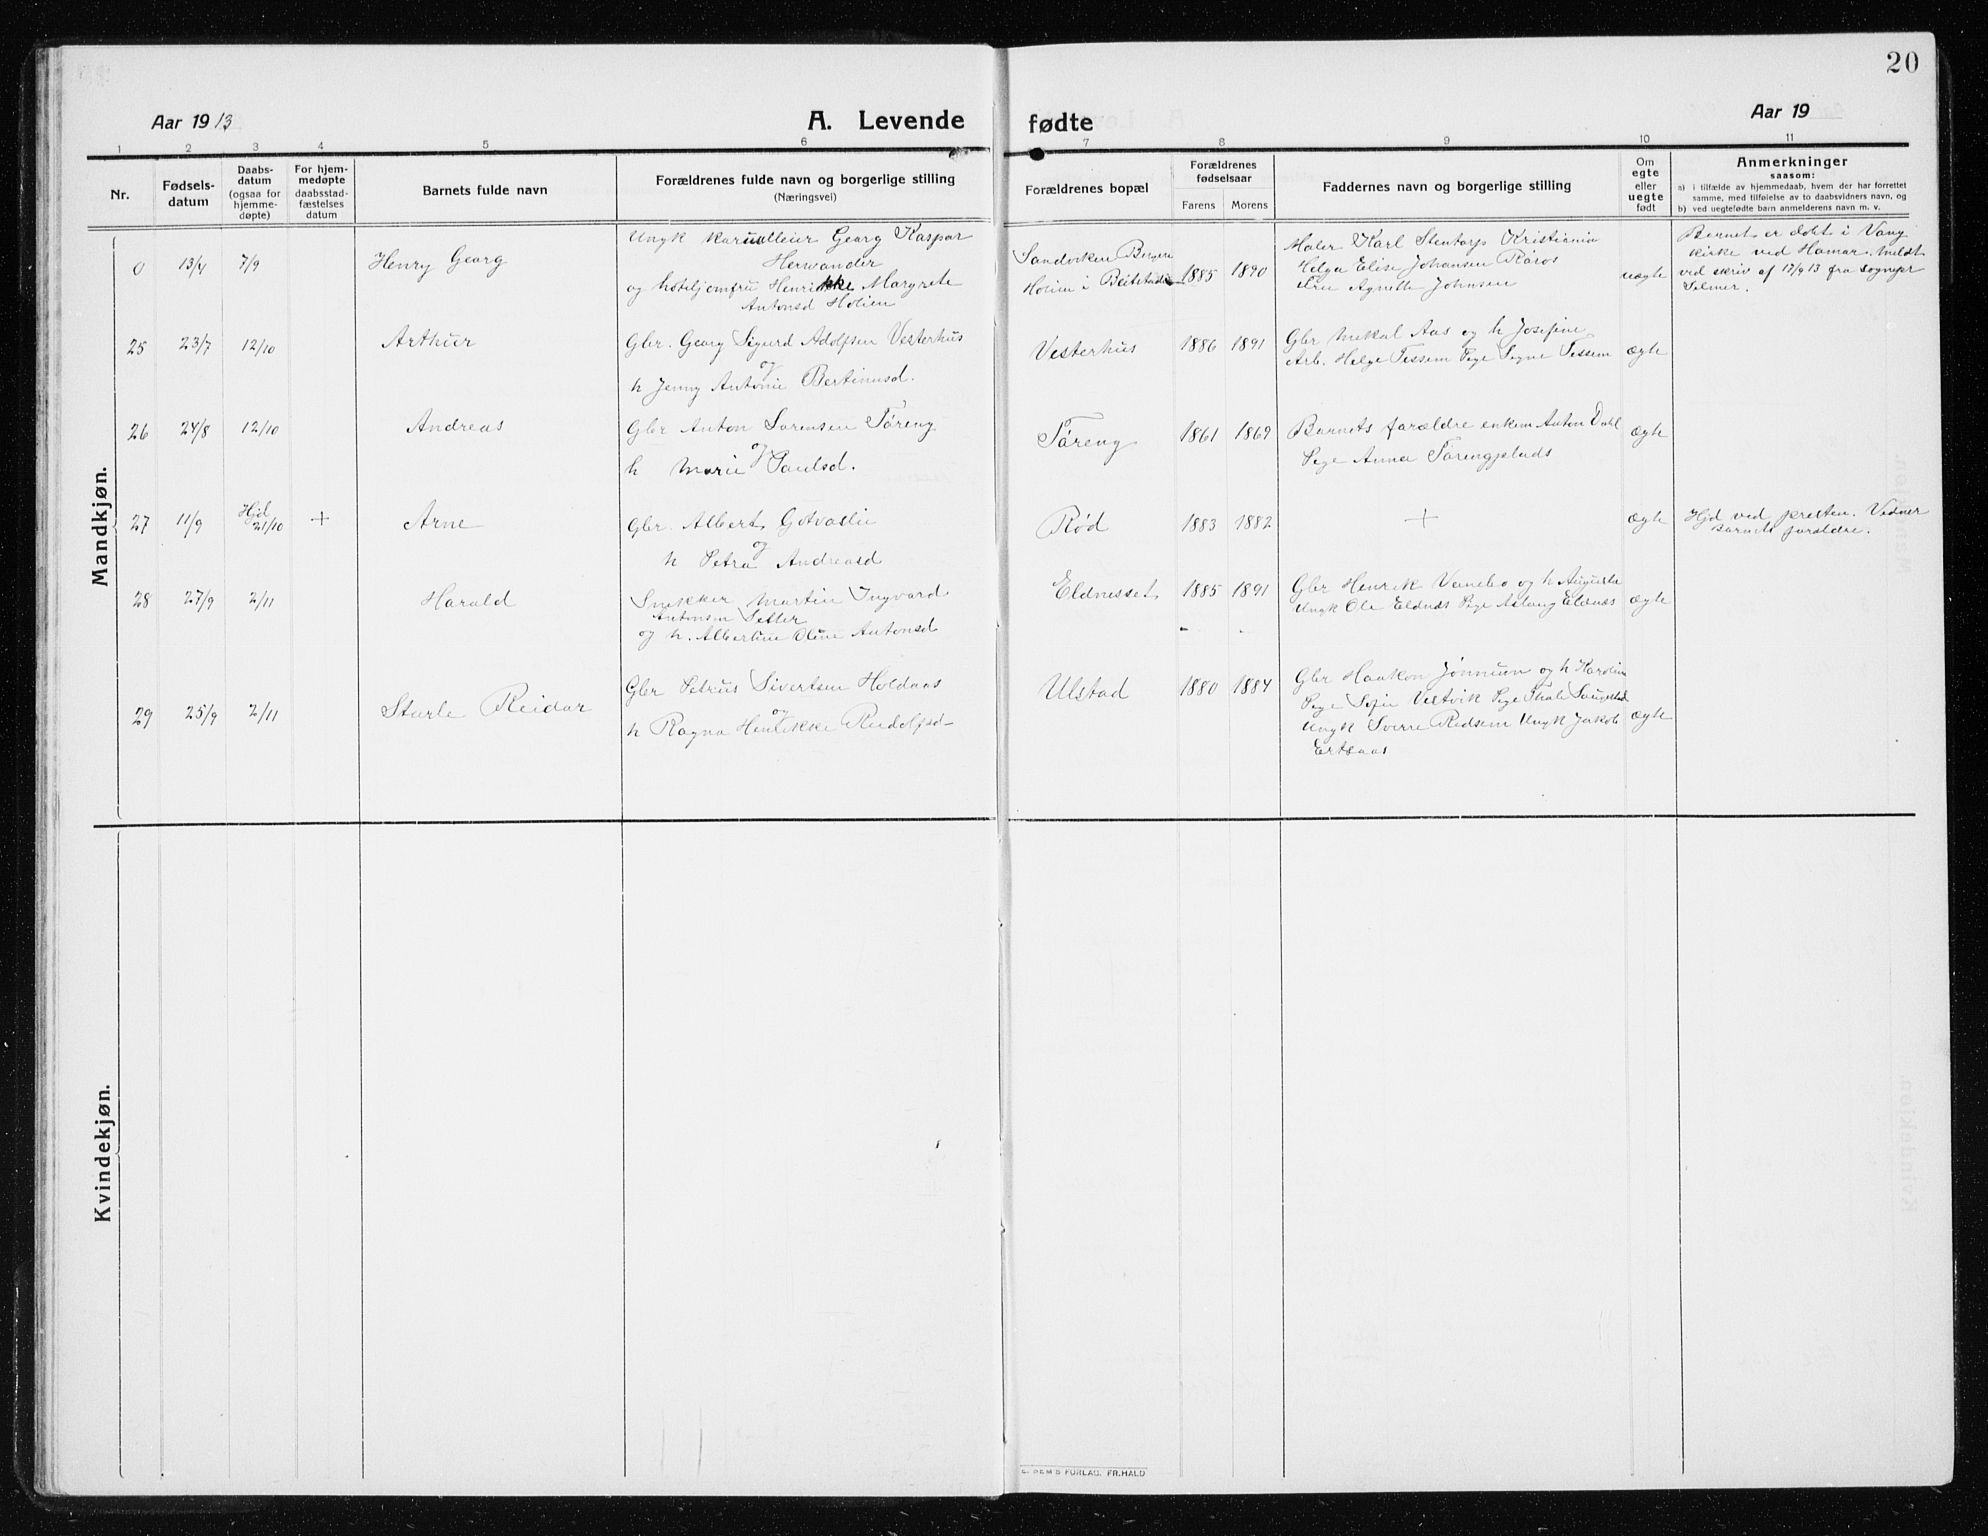 20
Aar 1913
A. Levende
fødte
Aar 19
1 2 3 4 5 6 7 8 9 10 11
Nr.
Fødsels-
datum
Daabs-
datum
(ogsaa for
hjemme-
døpte)
For hjem-
medøpte
daabsstad-
fæstelses
datum
Barnets fulde navn
Forældrenes fulde navn og borgerlige stilling
(Næringsvei)
Forældrenes bopæl
Forældrenes
fødselsaar
Farens Morens
Faddernes navn og borgerlige stilling
Om
egte
eller
uegte
født
Anmerkninger
saasom:
a) i tilfælde av hjemmedaab, hvem der har forrettet
samme, med tilføielse av to daabsvidners navn, og
b) ved uegtefødte barn anmelderens navn m. v.
Mandkjøn.
0 13/4 7/9 Henry Georg
Ungk Georg Kaspar
Herwander
og hoteljomfru Henrikke Margrete
Antonsd Holien
Sandviken Bergen
Holien i Beitstaden
1885 1890
Maler Karl Stentorp Kristiania
Helga Elise Johansen Røros
Fru Agnethe Johnsen
uægte
Barnet er døbt i Vang
kirke ved Hamar. Meldt
ved skriv af 17/9 13 fra sognepr
Selmer.
25 23/7 12/10 Arthur
Gbr. Georg Sigurd Adolfsen Vesterhus
og
h Jenny Antonie Bertinusd.
Vesterhus 1886 1891
Gbr Mekal Aas og h Josefine
Arb. Helge Tessem Pige Signe Tessem
ægte
26 24/8 12/10 Andreas
Gbr Anton Sørensen Tøreng
og
h Marie Paulsd.
Tøreng 1861 1869
Barnets forældre enkem Anton Dahl
Pige Anna Tørengplads
ægte
27 11/9 Hjd
21/10 + Arne
Gbr. Albert Gotvaslie
og
h Petra Andreasd
Rød 1883 1882 + ægte
Hjd ved presten. Vidner
barnets forældre.
28 27/9 2/11 Harald
Snekker Martin Ingvard
Antonsen Setter
og h. Albertine Oline Antonsd
Eldnesset 1885 1891
Gbr Henrik Vanebo og h Augusta
Ungk Ole Eldnæs Pige Aslaug Eldnæs
ægte
29 25/9 2/11 Sturle Reidar
Gbr Petrus Sivertsen Holdaas
og
h Ragna Henrikke Reidolfsd
Ulstad 1880 1884
Gbr Haakon Jønnum og h Karoline
Pige Sofie Vestvik Pige
Ungk Sverre Rødsem Ungk Jakob
Ertsaas
ægte
Kvindekjøn.
FORLAG. FR.HALD